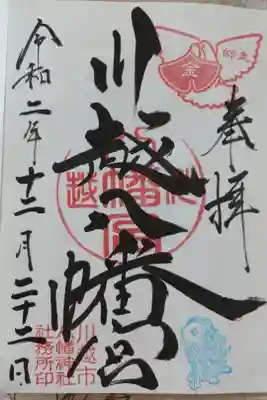 奉拝
師走
金
川越八幡宮
川越八幡宮
川越市
八幡神社
社務所印
令和二年十二月二十二日